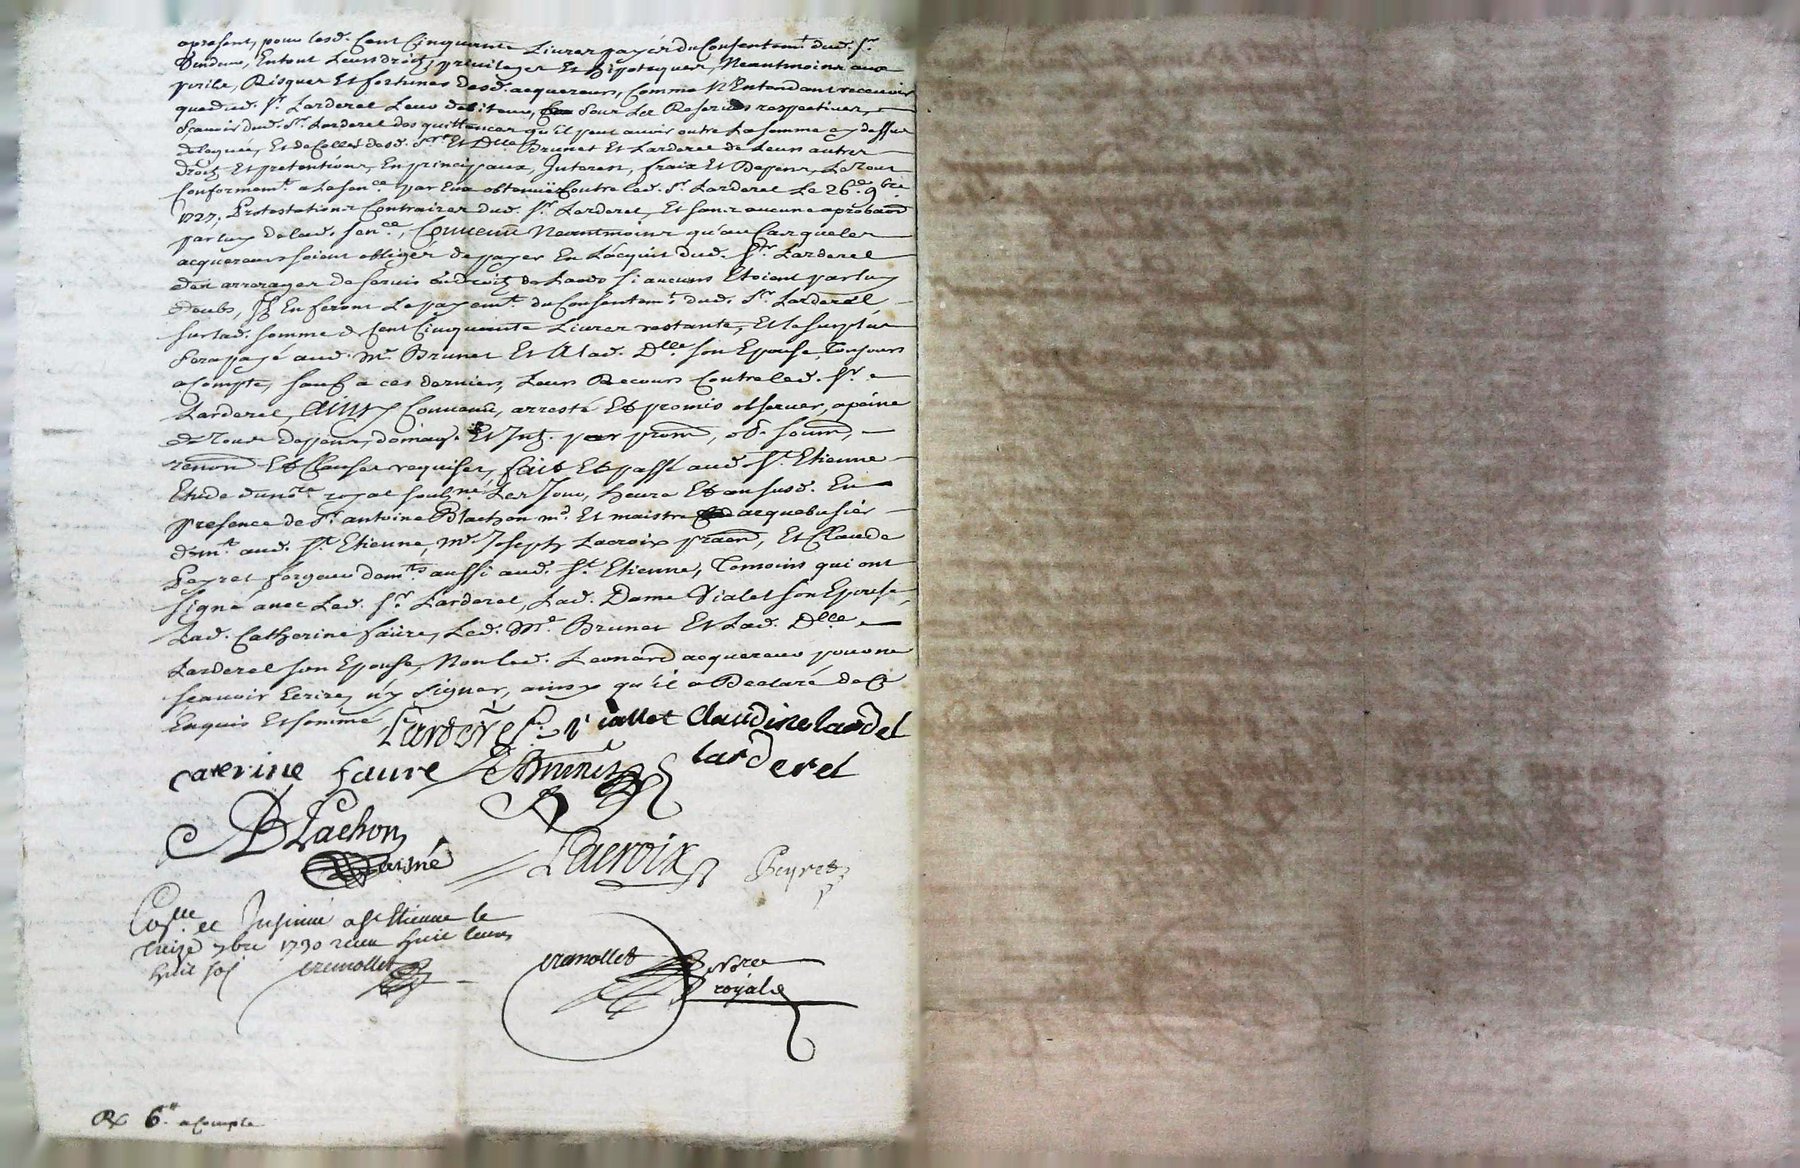 apresent, pour lesd. Cent Cinquante Livres payés du Consentemt. dud. Sr.
Vendeur, En tout Leurs droits, privileges Et hipoteques, Neantmoins aux
perils, Risques Et fortunes desd. acquereurs, Comme N'Entendant recevoir
que dud. Sr. Larderel Leur debiteur, Sous Les Reserves respectives,
Scavoir dud. Sr. Larderel des quittances qu'il peut avoir outre La somme cy dessus
deleguée, Et de Celles desd. Sr. Et Dlle Brunet Et Larderel de Leurs autres
droits Et pretentions, En principaux, Interets, fraix Et Depens, Le Tout
Conformemt. a La sence par Eux obtenüe Contre led. Sr. Larderel Le 26e. 9bre
1727, Protestations Contraires dud. Sr. Larderel, Et sans aucune aprobaõn
par luy de lad. sence, Convenu Neantmoins qu'au Cas que les
acquereurs soient obligés de payer En L'acquit dud. Sr. Larderel
des arrerages de servis ou droits de Laods si aucuns Etoient par luy
deubs, Ils En feront Le payemt. du Consentemt. dud. Sr. Larderel
sur lad. somme de Cent Cinquante Livres restante, Et le surplus
sera payé aud. Me. Brunet Et A lad. Dlle. son Epouse, Toujours
a Compte, sauf a ces derniers, Leurs Recours Contre led. Sr.
Larderel, Ainsy Convenu, arresté Et promis observer, a peine
de Tous depens, domag. Et Int. par prom, ob. soum,
renon Et Clauses requises, fait Et passé aud. St. Etienne
Etude du nore. royal soubsné. Les Jour, heure Et an susd. En
presence de Sr. antoine Blachon md. Et maistre arquebusier
demt. aud. St. Etienne, Me. Joseph Lacroix praõn, Et Claude
Peyret forgeur demts. aussi aud. St. Etienne, Temoins qui ont
signé avec Led. Sr. Larderel, Lad. Dame Vialet son Epouse,
Lad. Catherine faure, Led. Me. Brunet Et Lad. Dlle.
Larderel son Epouse, Non led. Leonard acquereur pour ne
scavoir Ecrire, n'y signer, ainsy qu'il a Declaré de ce
Enquis Et sommé
Larderel Viallet Claudine larderel
caterine faure Brunet larderel
Blachon
Lacroix Peyret
Coñlle. et Insinué a St Etienne le
treize 7bre 1730 receu huit livres
huit sols cremollet
cremollet Nore
royal
Rx 6tt. a Compte